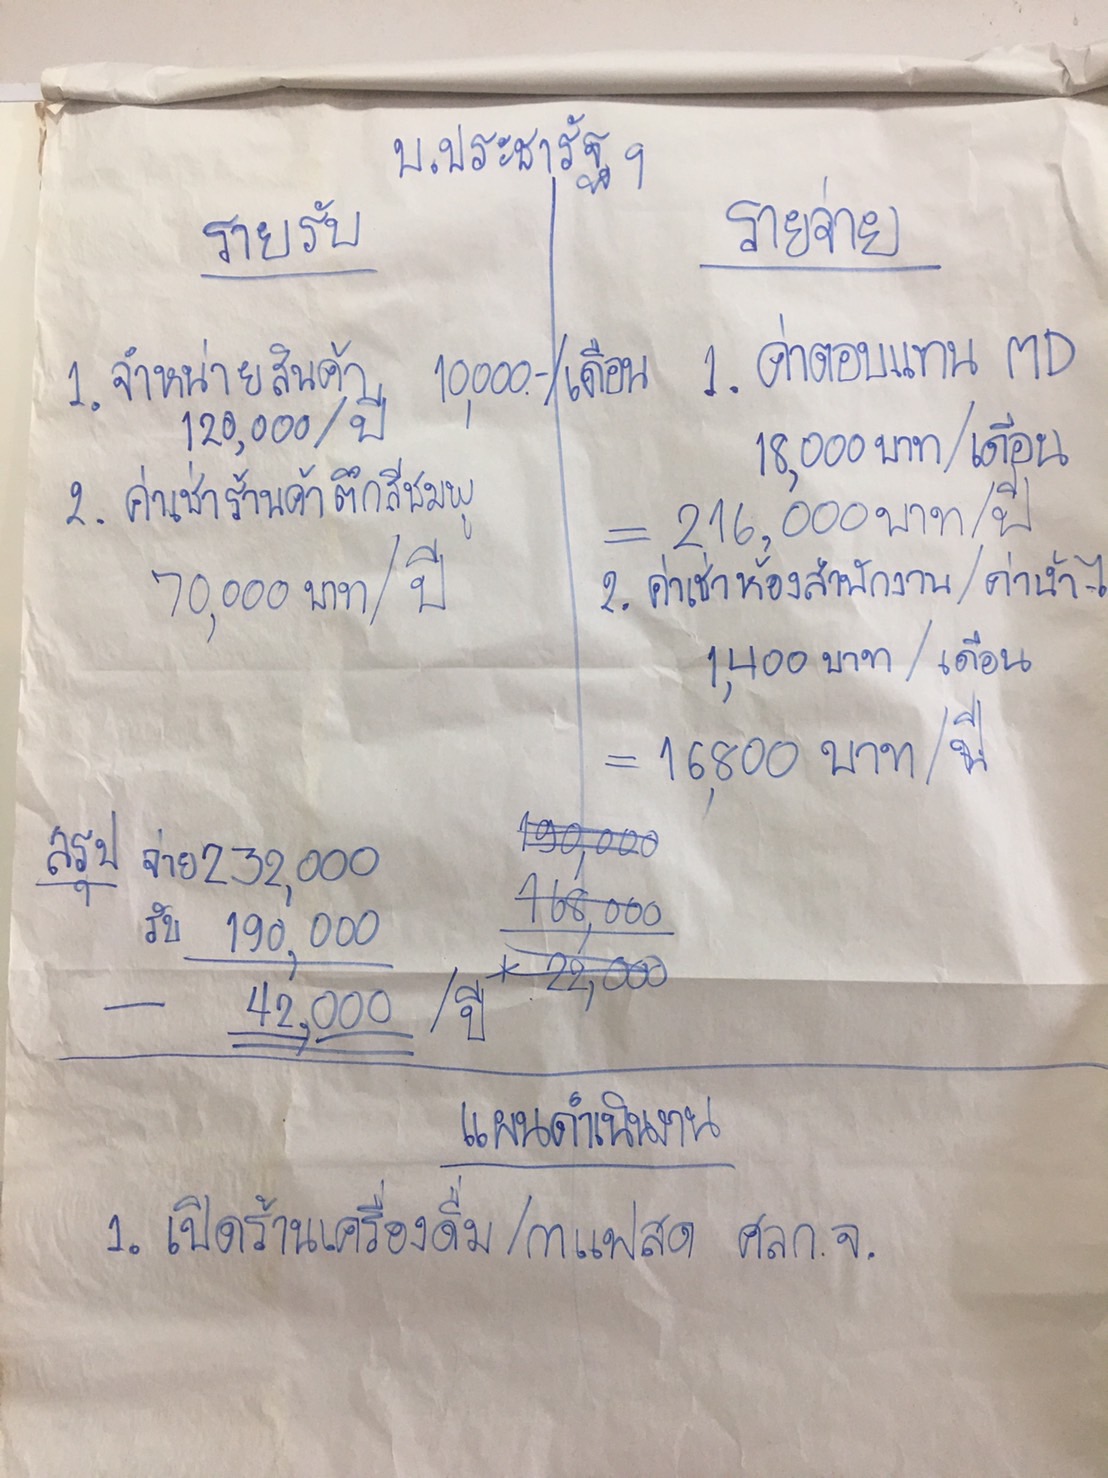 บ.ประชารัฐ ฯ
รายรับ
1. จำหน่ายสินค้า 10,000.-/เดือน
120,000/ปี
2. ค่าเช่าร้านค้าตึกสีชมพู
70,000 บาท/ปี
รายจ่าย
1. ค่าตอบแทน MD
18,000 บาท/เดือน
= 216,000 บาท/ปี
2. ค่าเช่าห้องสำนักงาน/ค่าน้ำ-ไ
1,400 บาท/เดือน
= 16,800 บาท/ปี
สรุป จ่าย 232,000
รับ 190,000
— 42,000 /ปี
190,000
168,000
22,000
แผนดำเนินงาน
1. เปิดร้านเครื่องดื่ม/กาแฟสด ศลก.จ.